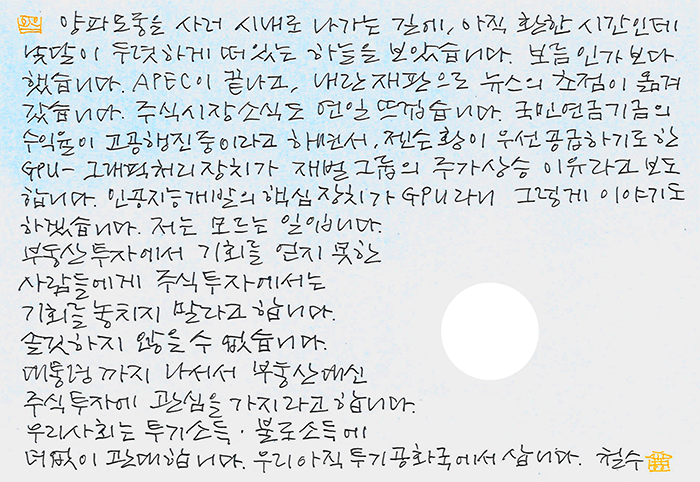 양파모종을 사러 시내로 나가는 길에, 아직 환한 시간인데
낮달이 뚜렷하게 떠있는 하늘을 보았습니다. 보름인가보다
했습니다. APEC이 끝나고, 내란재판으로 뉴스의 초점이 옮겨
갔습니다. 주식시장소식도 연일 뜨겁습니다. 국민연금기금의
수익율이 고공행진중이라고 하면서, 젠슨황이 우선공급하기로한
GPU- 그래픽처리장치가 재벌그룹의 주가상승 이유라고 보도
합니다. 인공지능개발의 핵심장치가 GPU라니 그렇게 이야기도
하겠습니다. 저는 모르는 일입니다.
부동산투자에서 기회를 얻지 못한
사람들에게 주식투자에서는
기회를 놓치지 말라고 합니다.
솔깃하지 않을 수 없습니다.
대통령까지 나서서 부동산대신
주식투자에 관심을 가지라고 합니다.
우리사회는 투기소득·불로소득에
더없이 관대합니다. 우리아직 투기공화국에서 삽니다. 철수